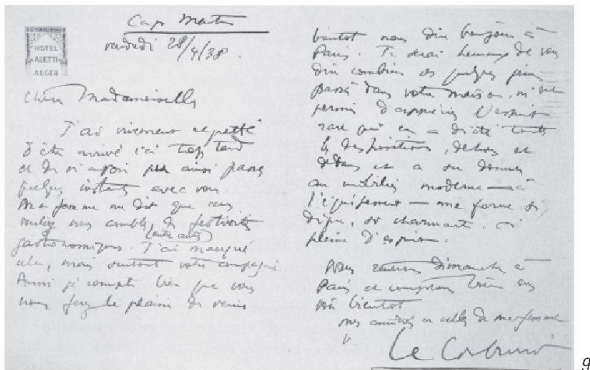 HOTEL
ALETTI
ALGER
Cap Martin
vendredi 28/4/38.
Chère Mademoiselle
J'ai vivement regretté
d'être arrivé ici trop tard
et de n'avoir pu ainsi passer
quelques instants avec vous.
Ma femme me dit que vous
nous combl de festivités
gastronomiques. (entre autres) J'ai manqué
cela, mais surtout votre compagnie
Aussi je compte bien que vous
nous ferez le plaisir de venir
bientôt nous dire bonjour à
Paris. Je serai heureux de vous
dire combien ces quelques jours
passés dans votre maison, m'ont
permis d'apprécier l'esprit
rare qui en a dicté toutes
les dispositions, dehors et
dedans et a su donner
au mobilier moderne — à
l'équipement — une forme si
digne, si charmante, si
pleine d'esprit.
Nous rentrons dimanche à
Paris et comptons bien vous
voir bientôt
mes amitiés et celles de ma femme
Le Corbusier
9